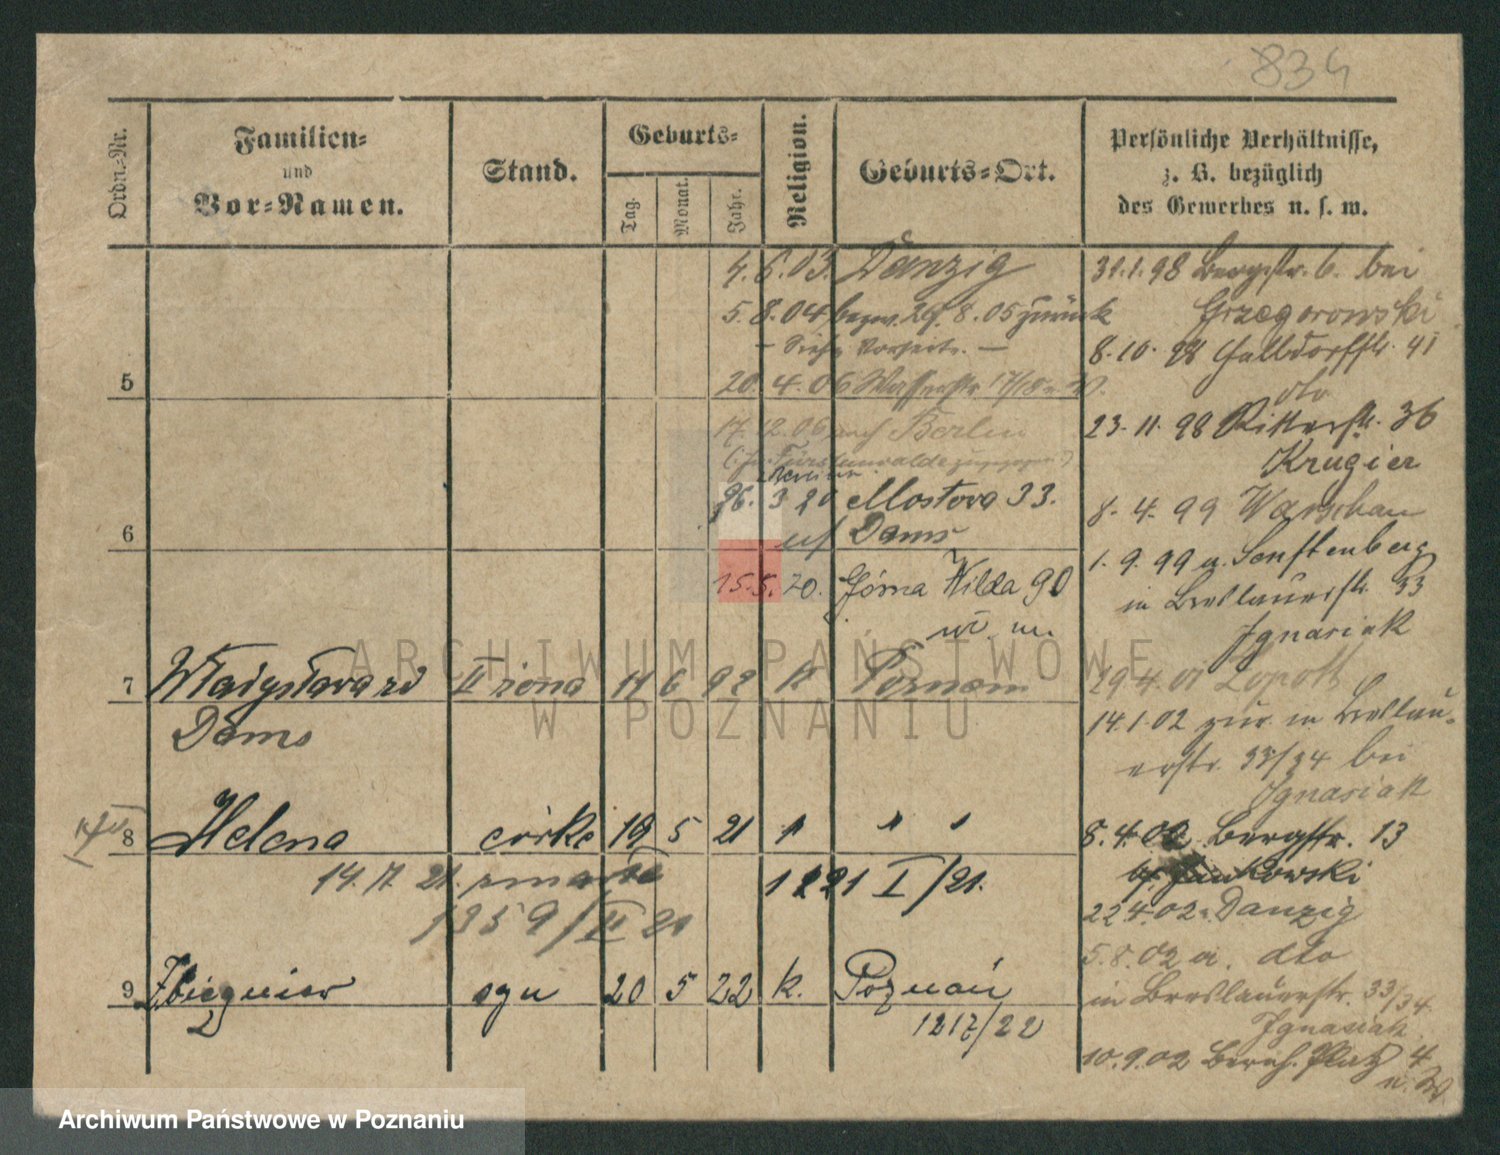 834
Ordn.-Nr.
Familien-
und
Vor-Namen.
Stand.
Geburts-
Tag.
Monat.
Jahr.
Religion.
Geburts-Ort.
Persönliche Verhältnisse,
z. B. bezüglich
des Gewerbes u. s. w.
4. 6. 03. Danzig
5. 8. 04 bezw. 29. 8. 05 zurück
— Siehe Vorseite. —
5
20. 4. 06 Wasserstr. 17/18
17. 12. 06 auf Berlin
26. 3 20 Mostowa 33.
6
Dams
15. 5. 20. Górna Wilda 90
w. m.
7 Władysława zd II żona 14 6 92 k Poznań
Dams
8 Helena córka 19 5 21 " " "
14. 7. 21. zmarła
1221 I/21.
1359/II 21
9 Zbigniew syn 20 5 22 k. Poznań
2
1217/22
31.1.98 Bergstr. 6. bei
Grzegorowski
8.10.98 Halbdorfstr. 41
dto
23.11.98 Ritterstr. 36
Krugier
8. 4. 99 Warschau
1. 9. 99 a. Senftenberg
in Breslauerstr. 33
Ignasiak
29.4.01 Zopott
14.1.02 zur. in Breslau-
erstr. 33/34 bei
Ignasiak
8.4.02 Bergstr. 13
b/ Jankowski
22.4.02 Danzig
5.8.02 a. dto
in Breslauerstr. 33/34
Ignasiak
10.9.02 Bernh. Platz 4
n. W.
ARCHIWUM PAŃSTWOWE
W POZNANIU
Archiwum Państwowe w Poznaniu